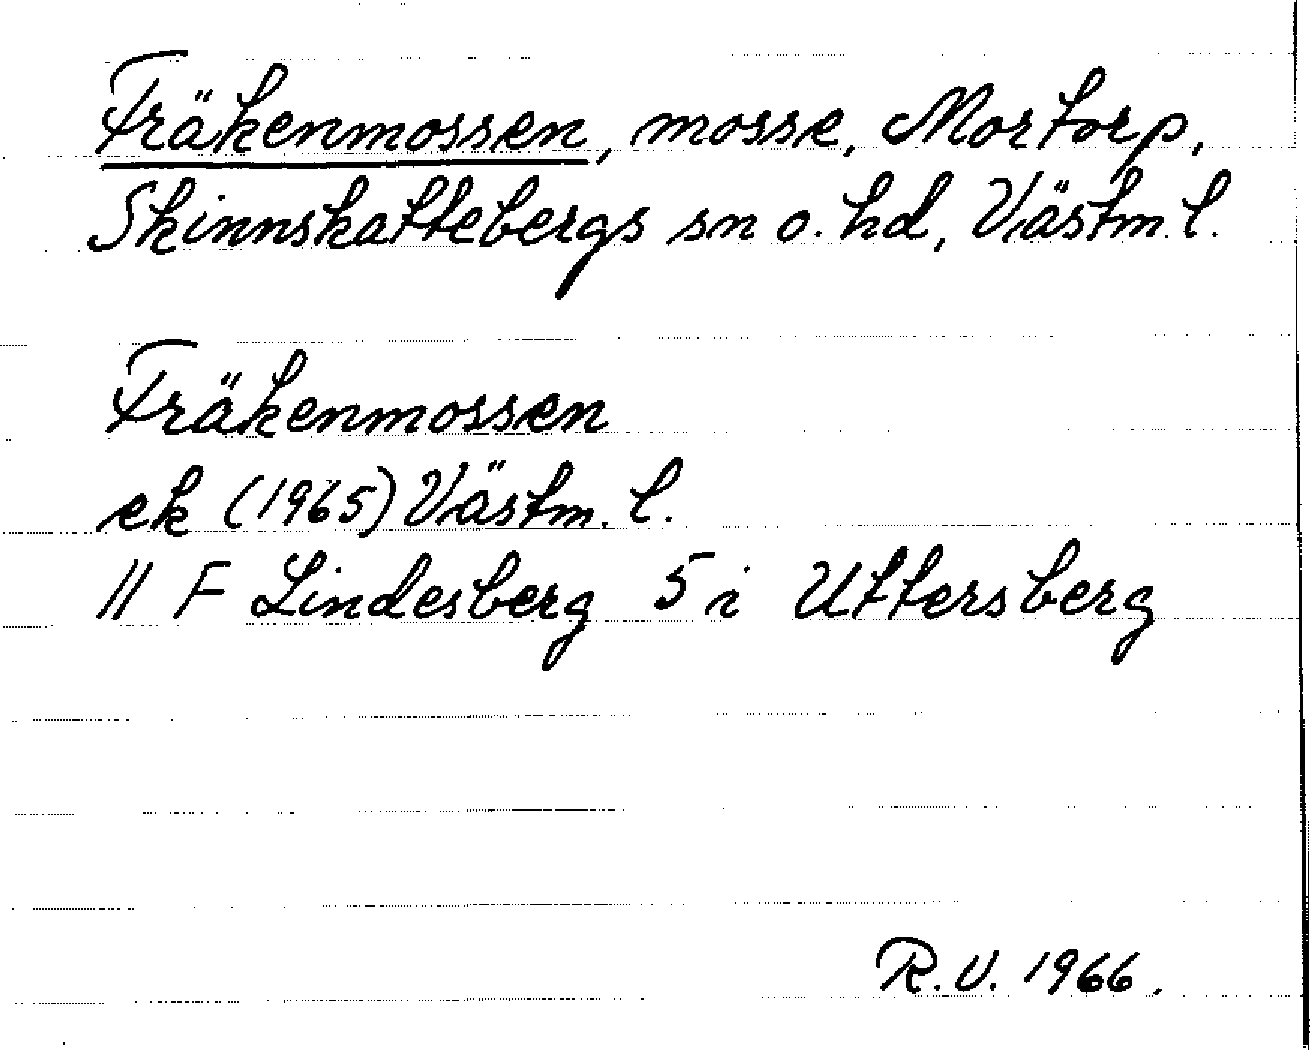 Fräkenmossen, mosse, Mortorp,
Skinnskattebergs sn o. hd, Västm. l.
Fräkenmossen
ek (1965) Västm. l.
11 F Lindesberg 5 i Uttersberg
R.V. 1966.